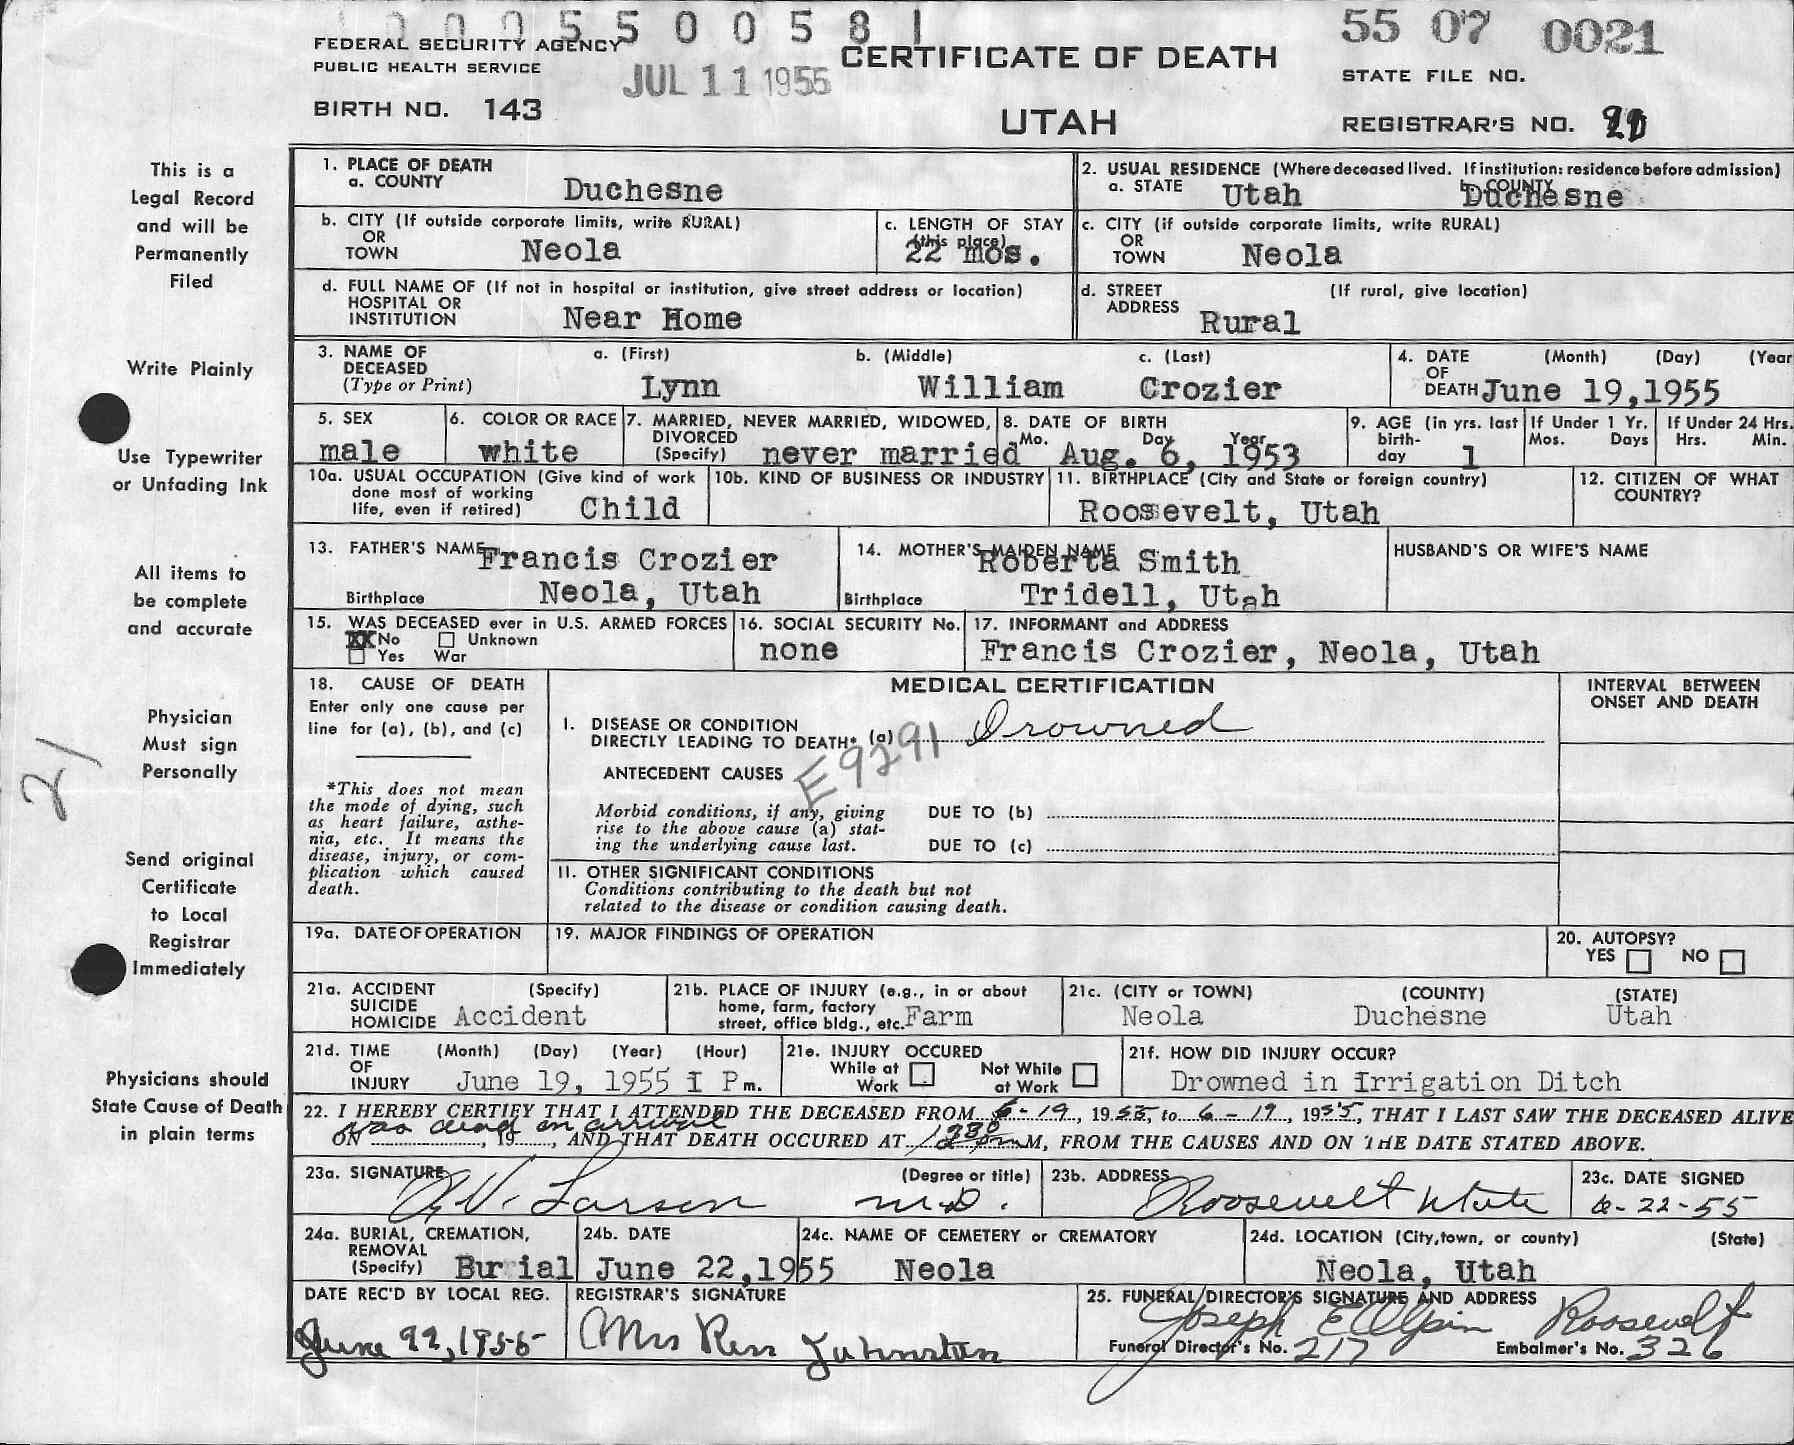 1 0 0 0 5 5 0 0 5 8 1
55 07 0021
FEDERAL SECURITY AGENCY
PUBLIC HEALTH SERVICE
JUL 11 1955
CERTIFICATE OF DEATH
STATE FILE NO.
BIRTH NO. 143
UTAH
REGISTRAR'S NO.
This is a
Legal Record
and will be
Permanently
Filed
Write Plainly
Use Typewriter
or Unfading Ink
All items to
be complete
and accurate
Physician
Must sign
Personally
21
Send original
Certificate
to Local
Registrar
Immediately
Physicians should
State Cause of Death
in plain terms
1. PLACE OF DEATH
a. COUNTY Duchesne
2. USUAL RESIDENCE (Where deceased lived. If institution: residence before admission)
a. STATE Utah b. COUNTY Duchesne
b. CITY (If outside corporate limits, write RURAL)
OR
TOWN Neola
c. LENGTH OF STAY
(this place)
22 mos.
c. CITY (if outside corporate limits, write RURAL)
OR
TOWN Neola
d. FULL NAME OF (If not in hospital or institution, give street address or location)
HOSPITAL OR
INSTITUTION Near Home
d. STREET (If rural, give location)
ADDRESS Rural
3. NAME OF
DECEASED
(Type or Print)
a. (First) b. (Middle) c. (Last)
Lynn William Crozier
4. DATE (Month) (Day) (Year
OF
DEATH June 19,1955
5. SEX
male
6. COLOR OR RACE
white
7. MARRIED, NEVER MARRIED, WIDOWED,
DIVORCED
(Specify) never married
8. DATE OF BIRTH
Mo. Day Year
Aug. 6, 1953
9. AGE (in yrs. last
birth-
day 1
If Under 1 Yr.
Mos. Days
If Under 24 Hrs.
Hrs. Min.
10a. USUAL OCCUPATION (Give kind of work
done most of working
life, even if retired) Child
10b. KIND OF BUSINESS OR INDUSTRY
11. BIRTHPLACE (City and State or foreign country)
Roosevelt, Utah
12. CITIZEN OF WHAT
COUNTRY?
13. FATHER'S NAME Francis Crozier
Birthplace Neola, Utah
14. MOTHER'S MAIDEN NAME Roberta Smith
Birthplace Tridell, Utah
HUSBAND'S OR WIFE'S NAME
15. WAS DECEASED ever in U.S. ARMED FORCES
XX No Unknown
Yes War
16. SOCIAL SECURITY No.
none
17. INFORMANT and ADDRESS
Francis Crozier, Neola, Utah
18. CAUSE OF DEATH
Enter only one cause per
line for (a), (b), and (c)
*This does not mean
the mode of dying, such
as heart failure, asthe-
nia, etc. It means the
disease, injury, or com-
plication which caused
death.
MEDICAL CERTIFICATION
I. DISEASE OR CONDITION
DIRECTLY LEADING TO DEATH* (a) Drowned
E9291
ANTECEDENT CAUSES
Morbid conditions, if any, giving
rise to the above cause (a) stat-
ing the underlying cause last.
DUE TO (b)
DUE TO (c)
II. OTHER SIGNIFICANT CONDITIONS
Conditions contributing to the death but not
related to the disease or condition causing death.
INTERVAL BETWEEN
ONSET AND DEATH
19a. DATE OF OPERATION
19. MAJOR FINDINGS OF OPERATION
20. AUTOPSY?
YES NO
21a. ACCIDENT (Specify)
SUICIDE
HOMICIDE Accident
21b. PLACE OF INJURY (e.g., in or about
home, farm, factory
street, office bldg., etc. Farm
21c. (CITY or TOWN) (COUNTY) (STATE)
Neola Duchesne Utah
21d. TIME (Month) (Day) (Year) (Hour)
OF
INJURY June 19, 1955 I P m.
21e. INJURY OCCURED
While at Work
Not While at Work
21f. HOW DID INJURY OCCUR?
Drowned in Irrigation Ditch
22. I HEREBY CERTIFY THAT I ATTENDED THE DECEASED FROM 6-19, 1955, to 6-19, 1955, THAT I LAST SAW THE DECEASED ALIVE
was dead on arrival
ON , 19 , AND THAT DEATH OCCURED AT M, FROM THE CAUSES AND ON THE DATE STATED ABOVE.
23a. SIGNATURE (Degree or title)
Larsen M.D.
23b. ADDRESS
Roosevelt Utah
23c. DATE SIGNED
6-22-55
24a. BURIAL, CREMATION,
REMOVAL
(Specify) Burial
24b. DATE
June 22,1955
24c. NAME OF CEMETERY or CREMATORY
Neola
24d. LOCATION (City,town, or county) (State)
Neola, Utah
DATE REC'D BY LOCAL REG.
June 22, 1955
REGISTRAR'S SIGNATURE
Mrs Ren Johnston
25. FUNERAL DIRECTOR'S SIGNATURE AND ADDRESS
Joseph E Olpin Roosevelt
Funeral Director's No. 217 Embalmer's No. 326